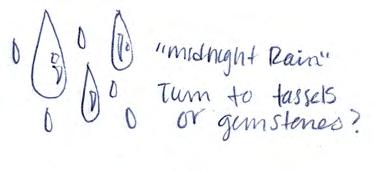 "midnight Rain"
Turn to tassels
or gemstones?